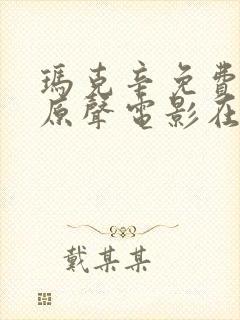 瑪克辛免費
原聲電影在
戴某某